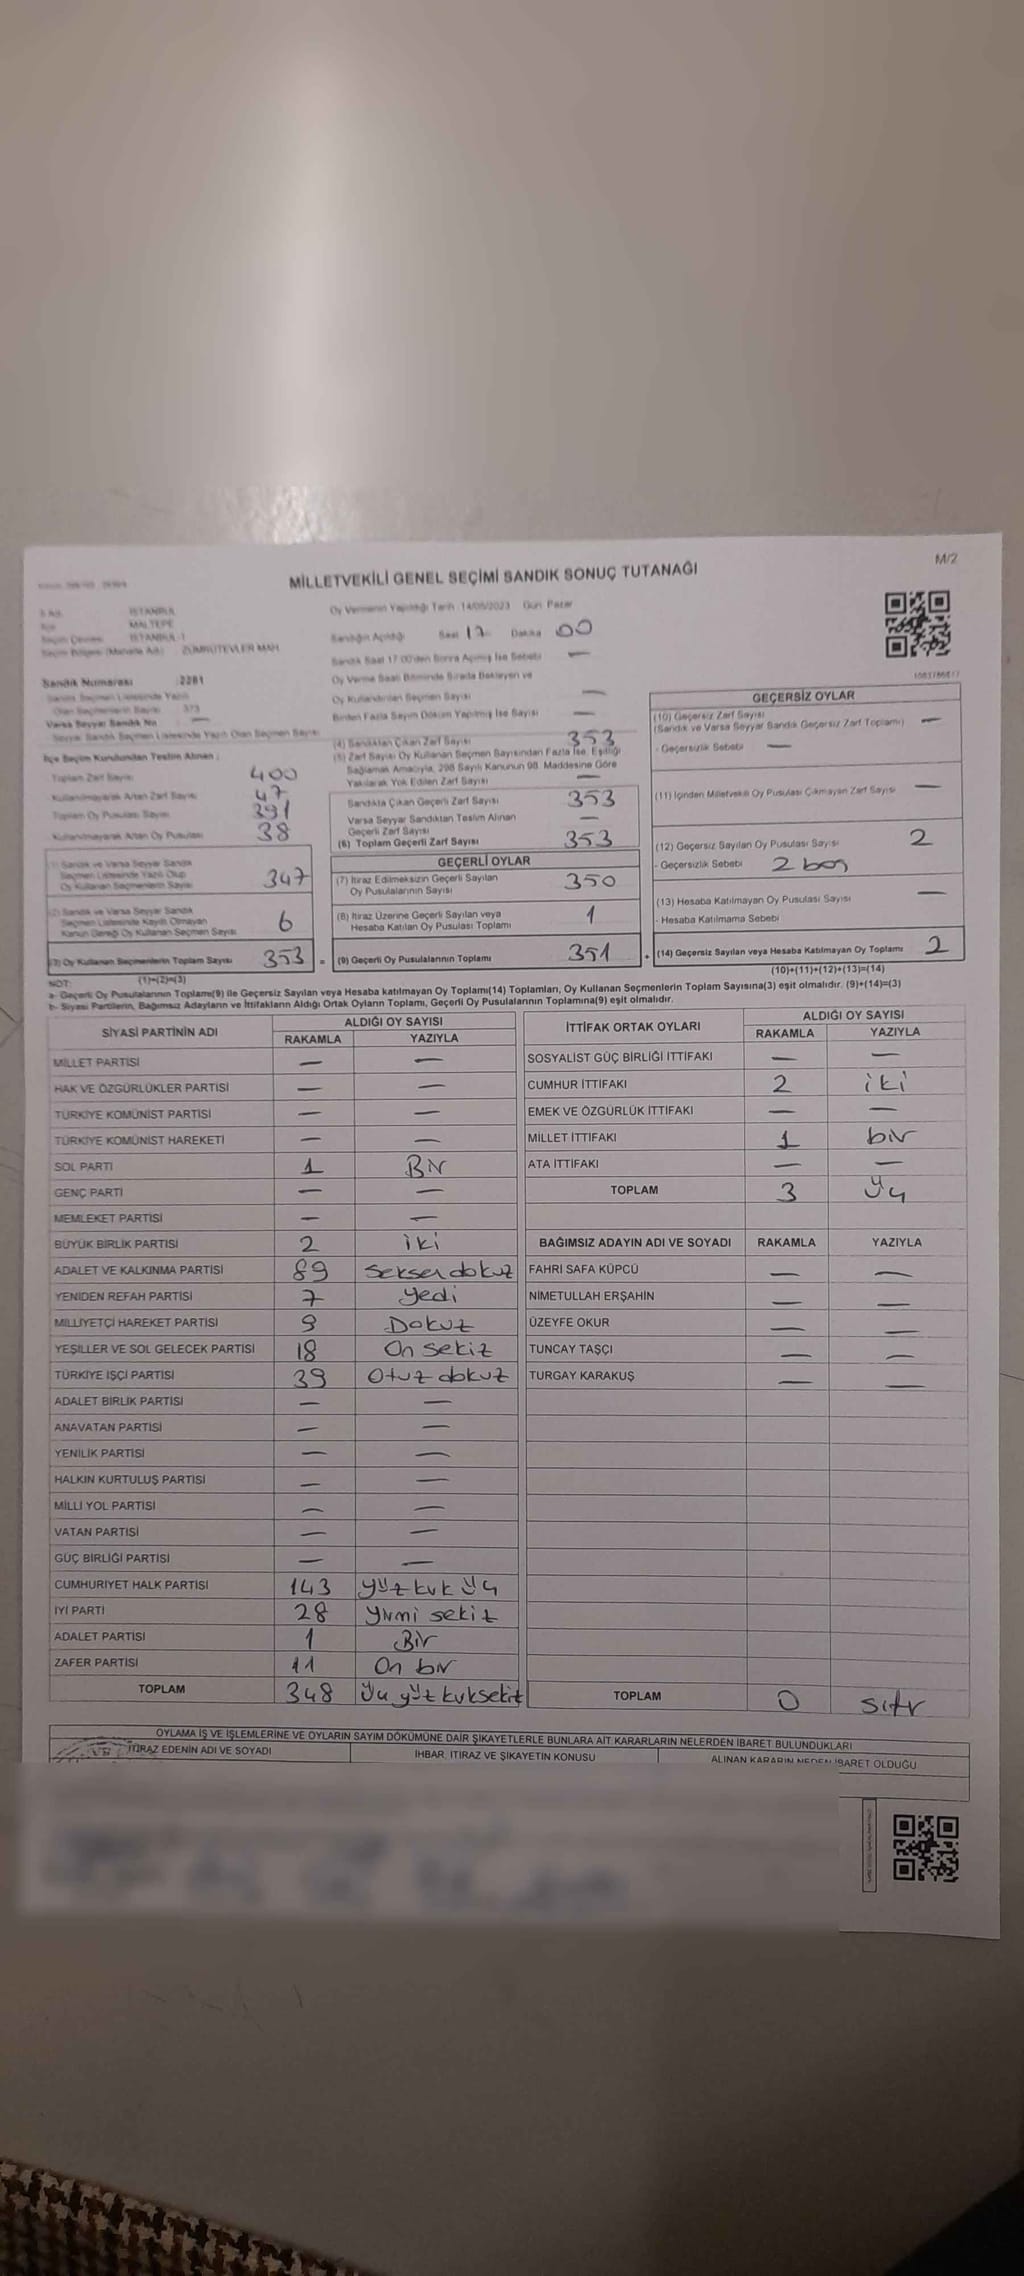 M/2
MİLLETVEKİLİ GENEL SEÇİMİ SANDIK SONUÇ TUTANAĞI
İSTANBUL
MALTEPE
Seçim Çevresi İSTANBUL-1
Seçim Bölgesi (Mahalle Adı) ZÜMRÜTEVLER MAH.
Sandık Numarası :2281
Sandık Seçmen Listesinde Yazılı
Olan Seçmenlerin Sayısı 373
Varsa Seyyar Sandık No —
Seyyar Sandık Seçmen Listesinde Yazılı Olan Seçmen Sayısı
İlçe Seçim Kurulundan Teslim Alınan :
Toplam Zarf Sayısı 400
Kullanılmayarak Artan Zarf Sayısı 47
Toplam Oy Pusulası Sayısı 391
Kullanılmayarak Artan Oy Pusulası 38
(1) Sandık ve Varsa Seyyar Sandık
Seçmen Listesinde Yazılı Olup
Oy Kullanan Seçmenlerin Sayısı 347
(2) Sandık ve Varsa Seyyar Sandık
Seçmen Listesinde Kayıtlı Olmayan
Kanun Gereği Oy Kullanan Seçmen Sayısı 6
(3) Oy Kullanan Seçmenlerin Toplam Sayısı 353 =
(1)+(2)=(3)
Oy Vermenin Yapıldığı Tarih :14/05/2023 Gün: Pazar
Sandığın Açıldığı Saat 17 Dakika 00
Sandık Saat 17:00'den Sonra Açılmış İse Sebebi —
Oy Verme Saati Bitiminde Sırada Bekleyen ve
Oy Kullandırılan Seçmen Sayısı —
Birden Fazla Sayım Döküm Yapılmış İse Sayısı —
(4) Sandıktan Çıkan Zarf Sayısı 353
(5) Zarf Sayısı Oy Kullanan Seçmen Sayısından Fazla İse, Eşitliği
Sağlamak Amacıyla, 298 Sayılı Kanunun 98. Maddesine Göre
Yakılarak Yok Edilen Zarf Sayısı —
Sandıkta Çıkan Geçerli Zarf Sayısı 353
Varsa Seyyar Sandıktan Teslim Alınan
Geçerli Zarf Sayısı —
(6) Toplam Geçerli Zarf Sayısı 353
GEÇERLİ OYLAR
(7) İtiraz Edilmeksizin Geçerli Sayılan
Oy Pusulalarının Sayısı 350
(8) İtiraz Üzerine Geçerli Sayılan veya
Hesaba Katılan Oy Pusulası Toplamı 1
(9) Geçerli Oy Pusulalarının Toplamı 351 +
GEÇERSİZ OYLAR
(10) Geçersiz Zarf Sayısı
(Sandık ve Varsa Seyyar Sandık Geçersiz Zarf Toplamı) —
- Geçersizlik Sebebi —
(11) İçinden Milletvekili Oy Pusulası Çıkmayan Zarf Sayısı —
(12) Geçersiz Sayılan Oy Pusulası Sayısı 2
- Geçersizlik Sebebi 2 boş
(13) Hesaba Katılmayan Oy Pusulası Sayısı —
- Hesaba Katılmama Sebebi
(14) Geçersiz Sayılan veya Hesaba Katılmayan Oy Toplamı 2
(10)+(11)+(12)+(13)=(14)
NOT:
a- Geçerli Oy Pusulalarının Toplamı(9) ile Geçersiz Sayılan veya Hesaba Katılmayan Oy Toplamı(14) Toplamları, Oy Kullanan Seçmenlerin Toplam Sayısına(3) eşit olmalıdır. (9)+(14)=(3)
b- Siyasi Partilerin, Bağımsız Adayların ve İttifakların Aldığı Ortak Oyların Toplamı, Geçerli Oy Pusulalarının Toplamına(9) eşit olmalıdır.
SİYASİ PARTİNİN ADI ALDIĞI OY SAYISI
RAKAMLA YAZIYLA
MİLLET PARTİSİ — —
HAK VE ÖZGÜRLÜKLER PARTİSİ — —
TÜRKİYE KOMÜNİST PARTİSİ — —
TÜRKİYE KOMÜNİST HAREKETİ — —
SOL PARTİ 1 Bir
GENÇ PARTİ — —
MEMLEKET PARTİSİ — —
BÜYÜK BİRLİK PARTİSİ 2 iki
ADALET VE KALKINMA PARTİSİ 89 Seksen dokuz
YENİDEN REFAH PARTİSİ 7 yedi
MİLLİYETÇİ HAREKET PARTİSİ 9 Dokuz
YEŞİLLER VE SOL GELECEK PARTİSİ 18 On sekiz
TÜRKİYE İŞÇİ PARTİSİ 39 Otuz dokuz
ADALET BİRLİK PARTİSİ — —
ANAVATAN PARTİSİ — —
YENİLİK PARTİSİ — —
HALKIN KURTULUŞ PARTİSİ — —
MİLLİ YOL PARTİSİ — —
VATAN PARTİSİ — —
GÜÇ BİRLİĞİ PARTİSİ — —
CUMHURİYET HALK PARTİSİ 143 yüz kırk üç
İYİ PARTİ 28 yirmi sekiz
ADALET PARTİSİ 1 Bir
ZAFER PARTİSİ 11 On bir
TOPLAM 348 üç yüz kırksekiz
İTTİFAK ORTAK OYLARI ALDIĞI OY SAYISI
RAKAMLA YAZIYLA
SOSYALİST GÜÇ BİRLİĞİ İTTİFAKI — —
CUMHUR İTTİFAKI 2 iki
EMEK VE ÖZGÜRLÜK İTTİFAKI — —
MİLLET İTTİFAKI 1 bir
ATA İTTİFAKI — —
TOPLAM 3 üç
BAĞIMSIZ ADAYIN ADI VE SOYADI RAKAMLA YAZIYLA
FAHRİ SAFA KÜPCÜ — —
NİMETULLAH ERŞAHİN — —
ÜZEYFE OKUR — —
TUNCAY TAŞÇI — —
TURGAY KARAKUŞ — —
TOPLAM 0 sıfır
OYLAMA İŞ VE İŞLEMLERİNE VE OYLARIN SAYIM DÖKÜMÜNE DAİR ŞİKAYETLERLE BUNLARA AİT KARARLARIN NELERDEN İBARET BULUNDUKLARI
İTİRAZ EDENİN ADI VE SOYADI İHBAR, İTİRAZ VE ŞİKAYETİN KONUSU ALINAN KARARIN NEDEN İBARET OLDUĞU